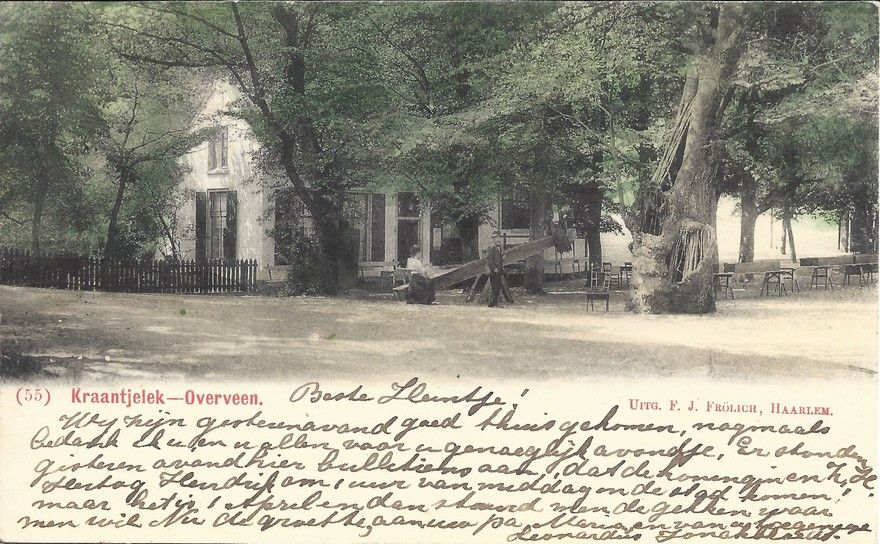 (55) Kraantjelek—Overveen.
Uitg. F. J. Frölich, Haarlem.
Beste Heintje!
Wij zijn gisterenavond goed thuis gekomen, nogmaals
bedank ik u en u allen voor u genoegelijk avondje, Er stonden
gisteren avond hier bulletiens aan, dat de koningin en Z. H.
Hertog Hendrik om 1 uur van middag in de stad komen!
maar het is 1 April en dan stuurd men de gekken waar
men wil Nu de groette, aan uw pa, Maria en van u toegenegen
Leonardus